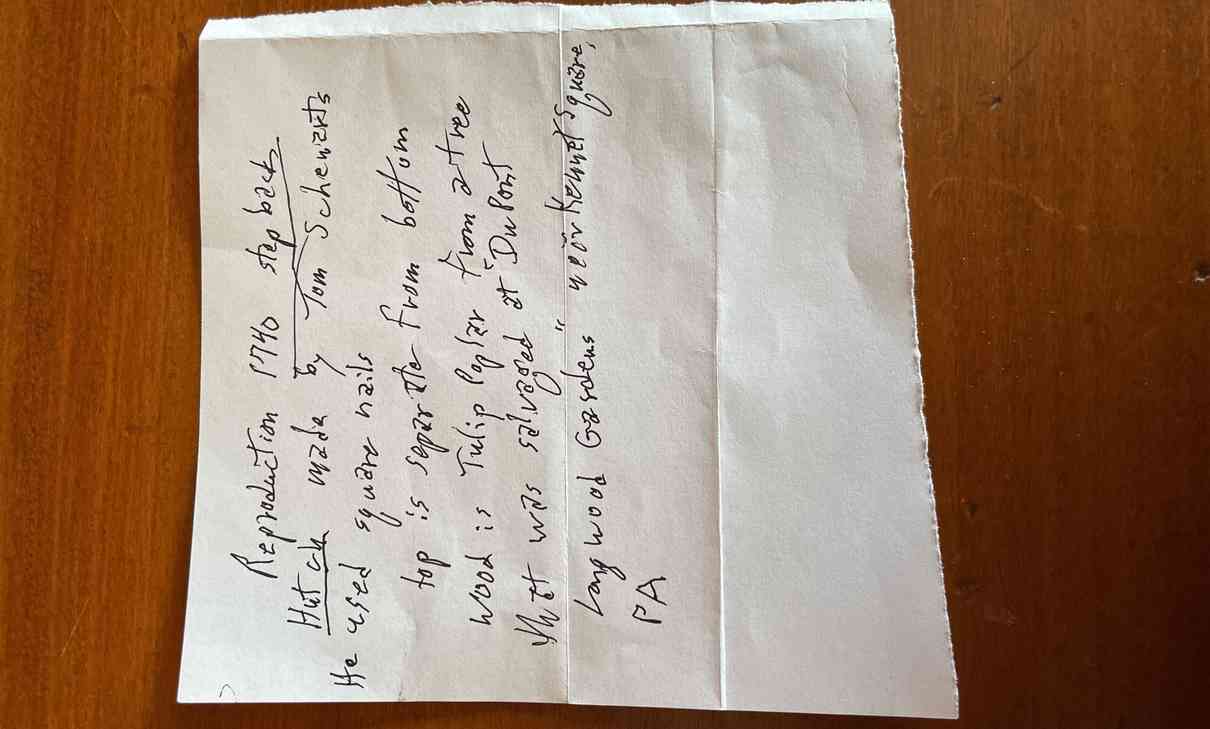 Reproduction 1740 step back
Hutch made by Tom Schewarts
He used square nails
top is separate from bottom
Wood is Tulip Poplar from a tree
that was salvaged at DuPont
Longwood Gardens " near Kennet Square,
PA